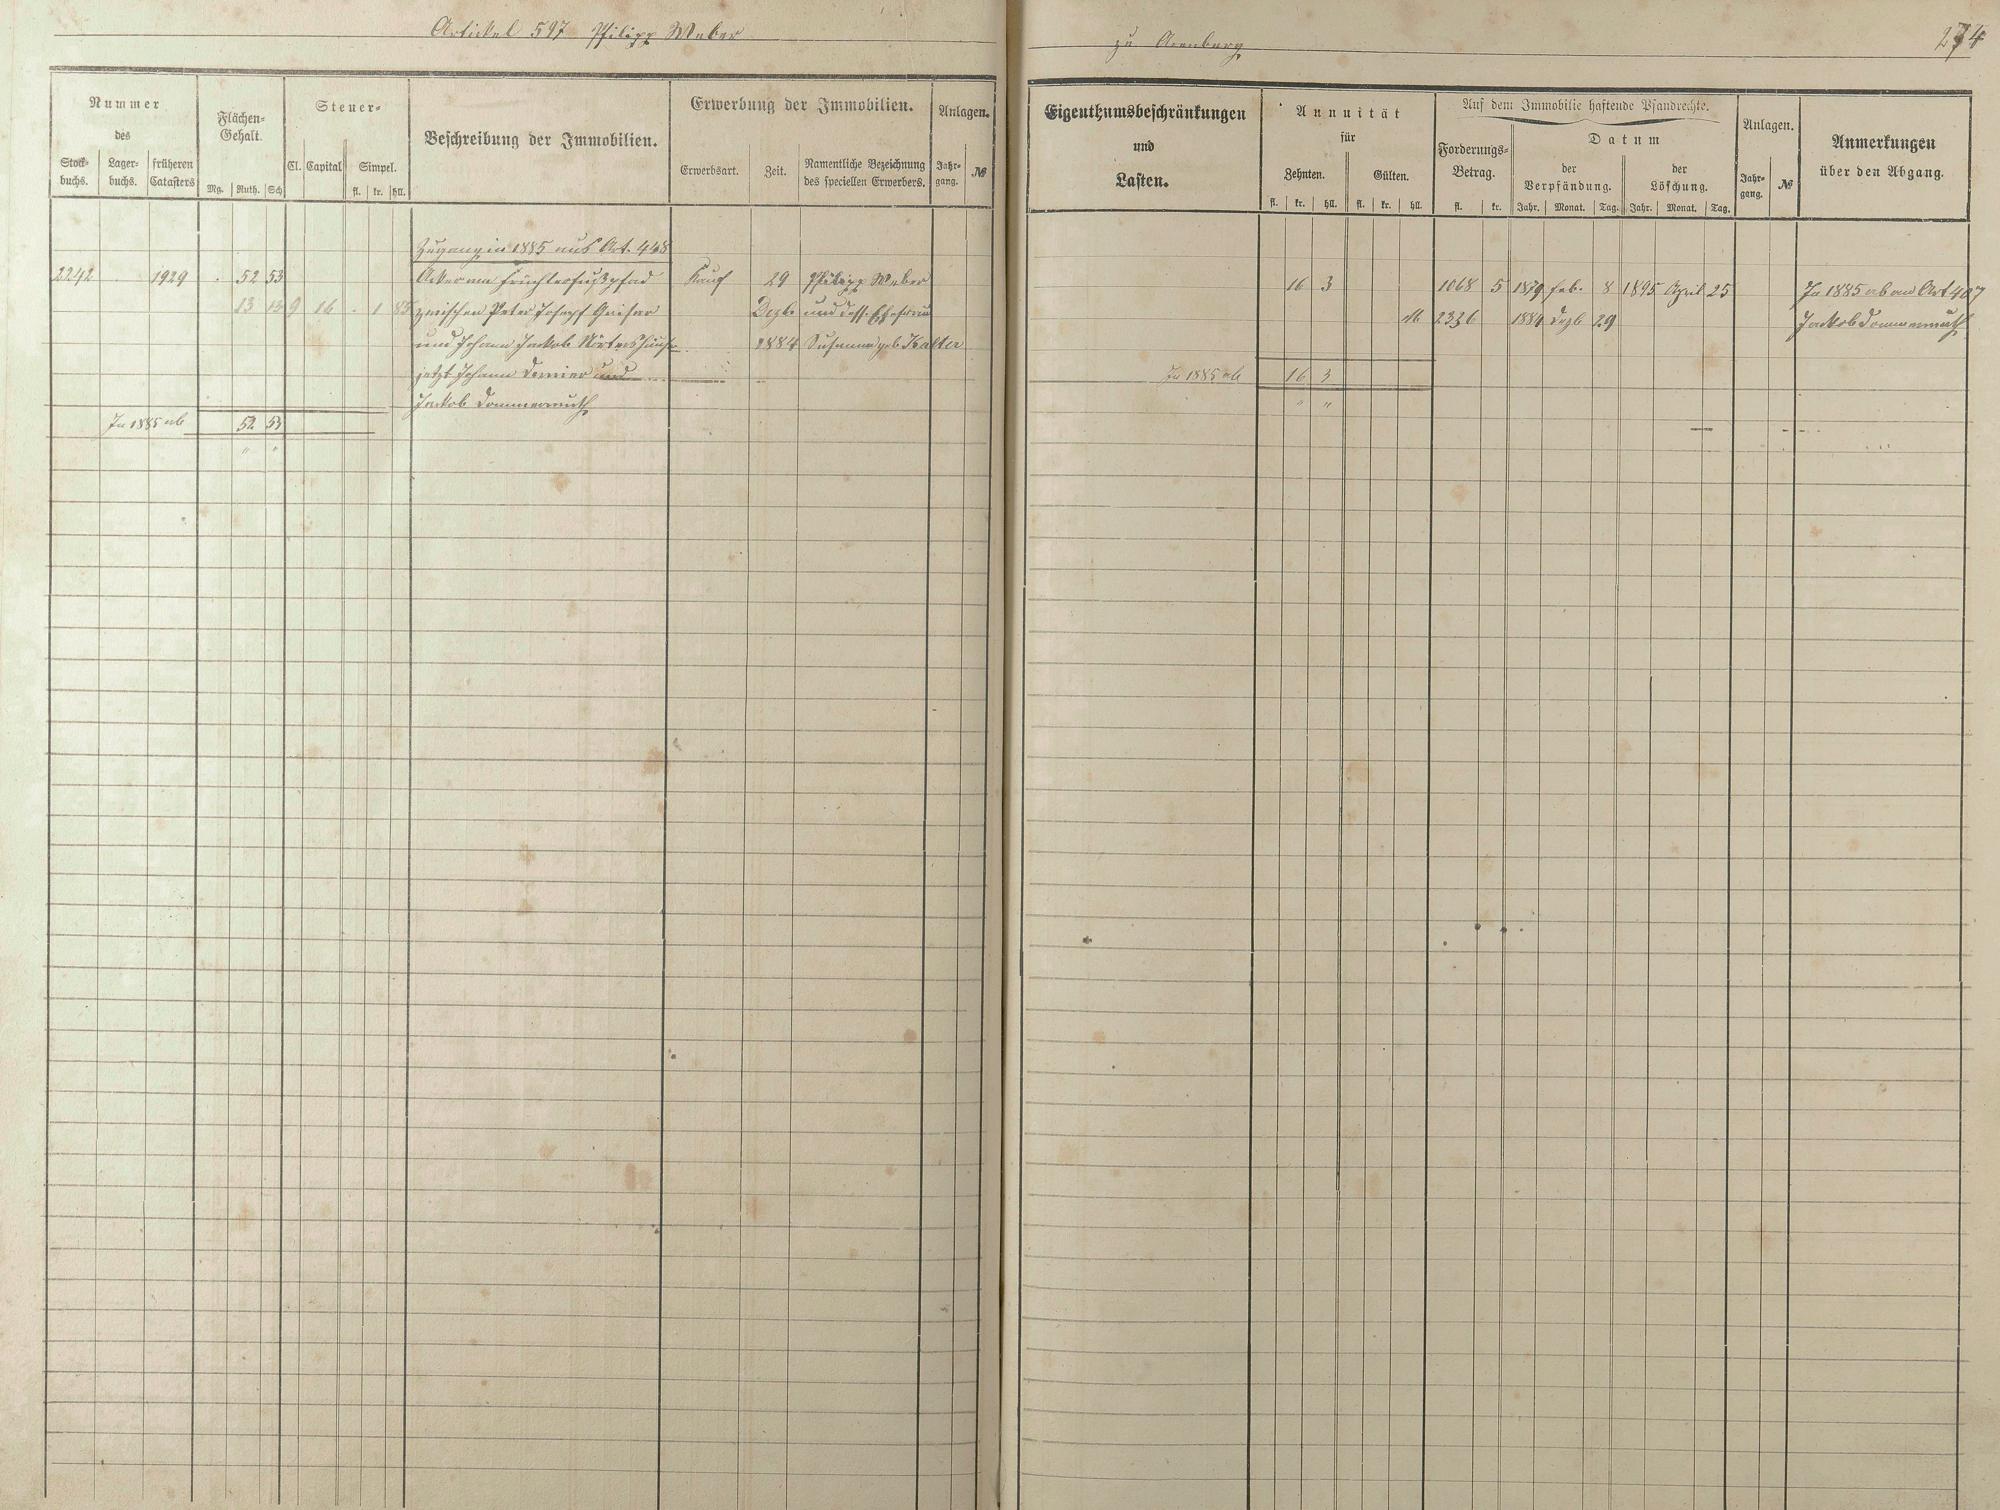 Artickel 597 Philipp Weber
Nummer
des
Stock-
buchs.
Lager-
buchs.
früheren
Catasters
Flächen-
Gehalt.
Mg. Ruth. Sch
Steuer-
Cl. Capital Simpel.
fl. kr. hll.
Beschreibung der Immobilien.
Erwerbung der Immobilien.
Erwerbsart. Zeit.
Namentliche Bezeichnung
des speciellen Erwerbers.
Anlagen.
Jahr-
gang.
№
Zugang in 1885 aus Art. 448
2242 1929 52 53 Acker am Früchterfußpfad Kauf 29 Philipp Weber
13 13 9 16 - 1 zwischen Peter Josef Dezb. und dess. Ehefrau
und Johann Jackob 1884 Susanna geb. Kalter
jetzt Johann und
Jackob Dommermuth
In 1885 ab 52 53
" "
zu Arenberg
274
Eigenthumsbeschränkungen
und
Lasten.
Annuität
für
Zehnten. Gülten.
fl. kr. hll. fl. kr. hll.
Auf dem Immobilie haftende Pfandrechte.
Forderungs-
Betrag.
fl. kr.
Datum
der
Verpfändung.
Jahr. Monat. Tag.
der
Löschung.
Jahr. Monat. Tag.
Anlagen.
Jahr-
gang.
№
Anmerkungen
über den Abgang.
16 3 1068 5 1879 Feb. 8 1895 April 25 In 1885 ab an Art 407
M 2336 1884 Dezb 29 Jackob Dommermuth
In 1885 ab 16 3
" "